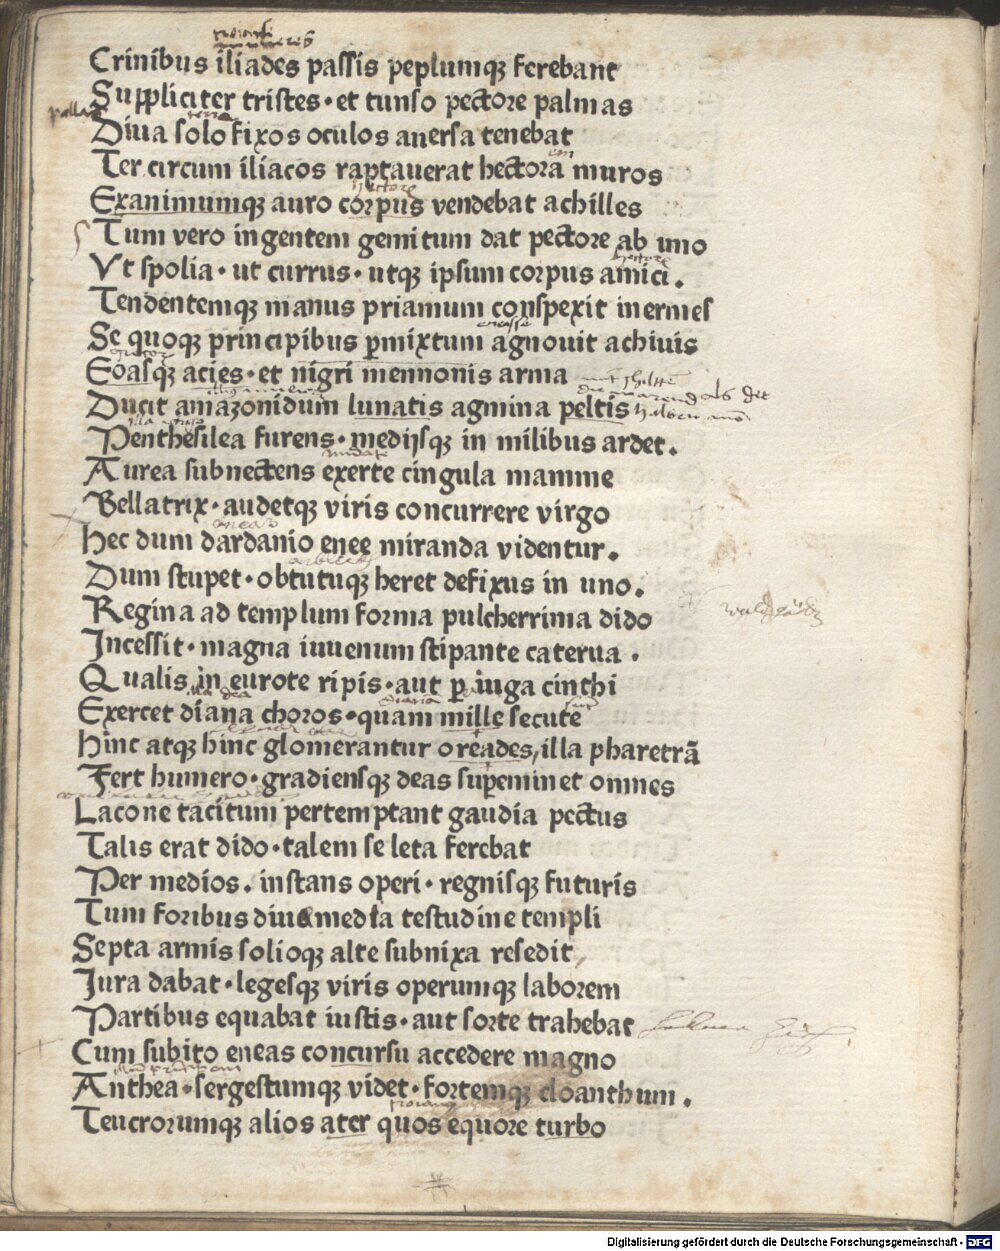 Crinibus iliades passis peplumqꝫ ferebant
Suppliciter tristes · et tunso pectore palmas
Diua solo fixos oculos auersa tenebat
Ter circum iliacos raptauerat hectora muros
Exanimumqꝫ auro corpus vendebat achilles
Tum vero ingentem gemitum dat pectore ab imo
Vt spolia · ut currus · utqꝫ ipsum corpus amici .
Tendentemqꝫ manus priamum conspexit inermes
Se quoqꝫ principibus ꝑmixtum agnouit achiuis
Eoasqꝫ acies · et nigri mennonis arma
Ducit amazonidum lunatis agmina peltis
Penthesilea furens · medijsqꝫ in milibus ardet .
Aurea subnectens exerte cingula mamme
Bellatrix · audetqꝫ viris concurrere virgo
Hec dum dardanio enee miranda videntur .
Dum stupet · obtutuqꝫ heret defixus in uno .
Regina ad templum forma pulcherrima dido
Incessit · magna iuuenum stipante caterua .
Qualis in eurote ripis · aut ꝑ iuga cinthi
Exercet diana choros · quam mille secute
Hinc atqꝫ hinc glomerantur oreades, illa pharetrā
Fert humero · gradiensqꝫ deas suꝑeminet omnes
Lacone tacitum pertemptant gaudia pectus
Talis erat dido · talem se leta ferebat
Per medios . instans operi · regnisqꝫ futuris
Tum foribus diue media testudine templi
Septa armis solioqꝫ alte subnixa resedit,
Jura dabat · legesqꝫ viris operumqꝫ laborem
Partibus equabat iustis · aut sorte trahebat
Cum subito eneas concursu accedere magno
Anthea · sergestumqꝫ videt · fortemqꝫ cloanthum .
Teucrorumqꝫ alios ater quos equore turbo
Digitalisierung gefördert durch die Deutsche Forschungsgemeinschaft · DFG